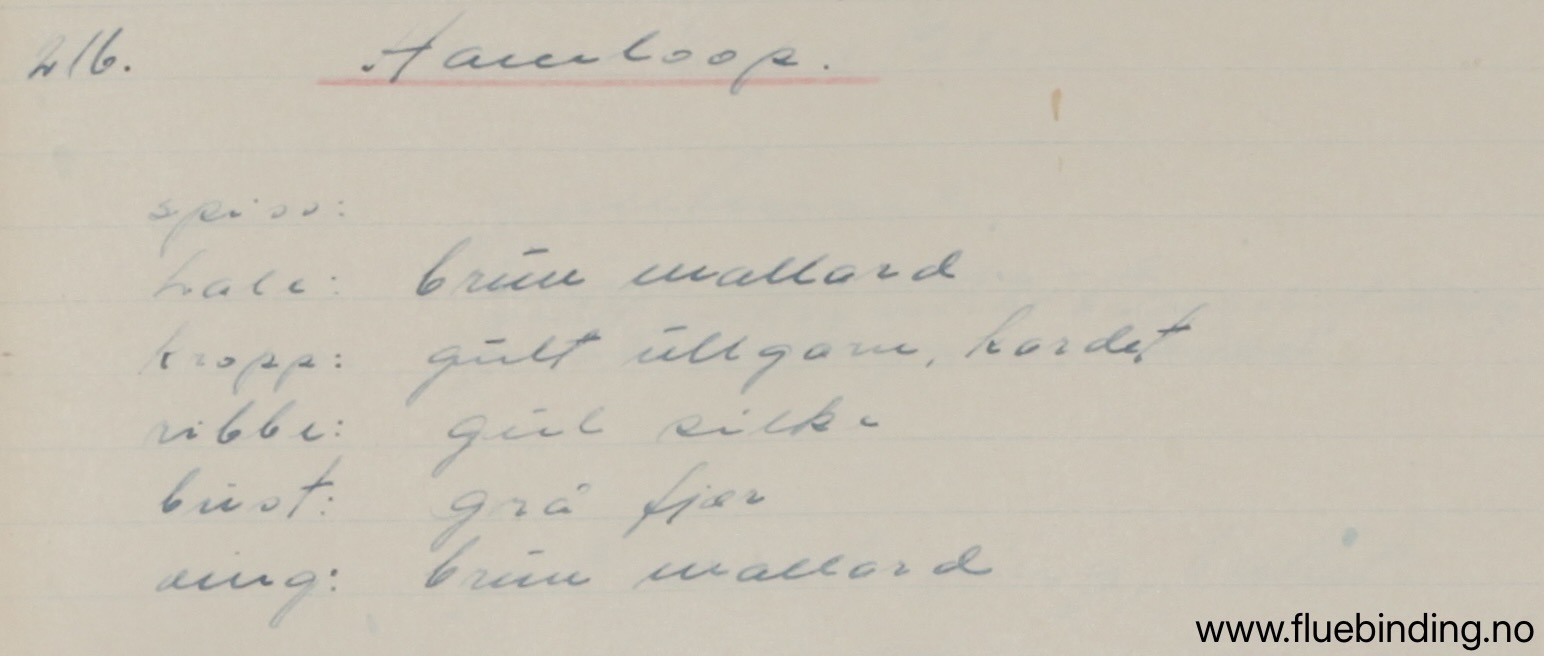 216. Hamloop.
spiss:
hale: brun mallard
kropp: gult ullgarn, kardet
ribbe: gul silke
bust: grå fjær
ving: brun mallard
www.fluebinding.no